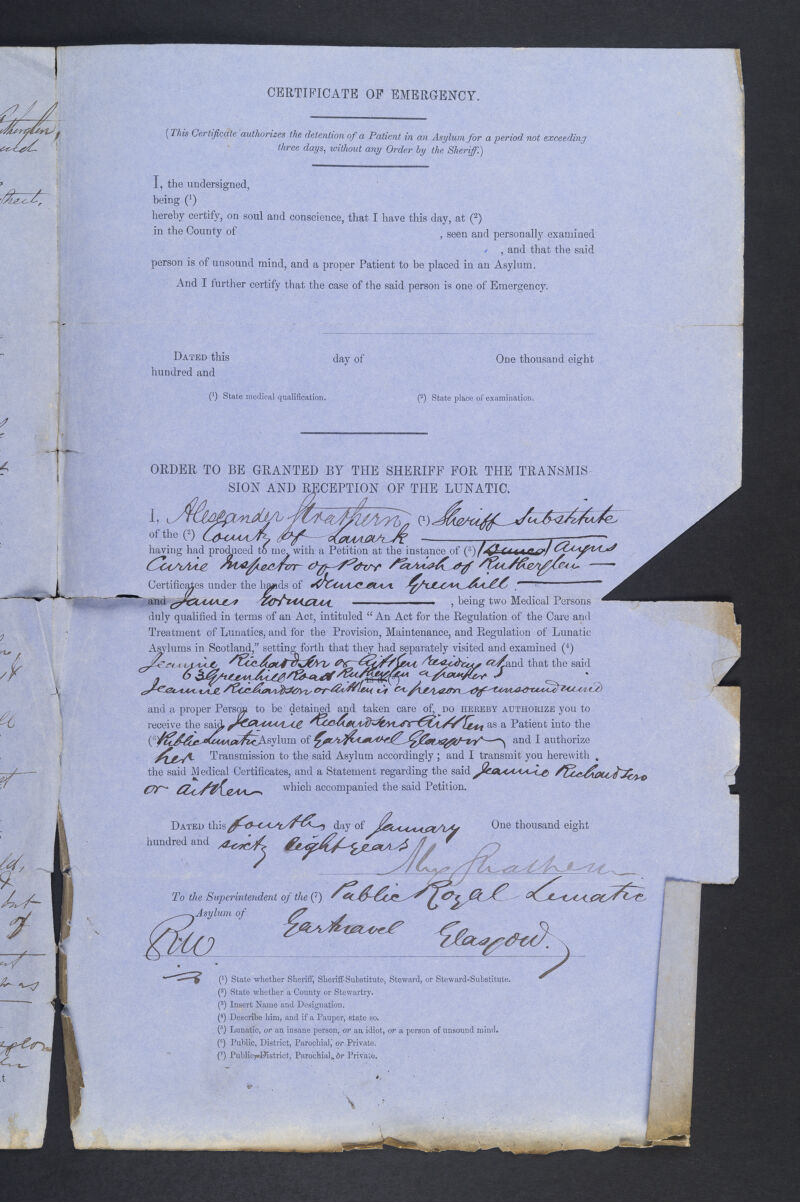 CERTIFICATE OF EMERGENCY.
(This Certificate authorizes the detention of a Patient in an Asylum for a period not exceeding
three days, without any Order by the Sheriff.)
I, the undersigned,
being (1)
hereby certify, on soul and conscience, that I have this day, at (2)
in the County of , seen and personally examined
, and that the said
person is of unsound mind, and a proper Patient to be placed in an Asylum.
And I further certify that the case of the said person is one of Emergency.
DATED this day of One thousand eight
hundred and
(1) State medical qualification. (2) State place of examination.
ORDER TO BE GRANTED BY THE SHERIFF FOR THE TRANSMIS-
SION AND RECEPTION OF THE LUNATIC.
I, Alexander Strathern (1) Sheriff Substitute
of the (2) County of Lanark
having had produced to me, with a Petition at the instance of (3) Angus
Currie Inspector of Poor Parish of Rutherglen
Certificates under the hands of Duncan Greenhill
and James Gorman , being two Medical Persons
duly qualified in terms of an Act, intituled "An Act for the Regulation of the Care and
Treatment of Lunatics, and for the Provision, Maintenance, and Regulation of Lunatic
Asylums in Scotland," setting forth that they had separately visited and examined (4)
Jeannie Richardson or Aitken residing at and that the said
63 Greenhill Road Rutherglen a pauper
Jeannie Richardson or Aitken is a person of unsound mind
and a proper Person to be detained and taken care of, DO HEREBY AUTHORIZE you to
receive the said Jeannie Richardson or Aitken as a Patient into the
(6) Public Lunatic Asylum of Gartnavel Glasgow and I authorize
her Transmission to the said Asylum accordingly; and I transmit you herewith
the said Medical Certificates, and a Statement regarding the said Jeannie Richardson
or Aitken which accompanied the said Petition.
DATED this fourth day of January One thousand eight
hundred and sixty eight years
Alex Strathern
To the Superintendent of the (7) Public Royal Lunatic
Asylum of Gartnavel Glasgow.
(1) State whether Sheriff, Sheriff-Substitute, Steward, or Steward-Substitute.
(2) State whether a County or Stewartry.
(3) Insert Name and Designation.
(4) Describe him, and if a Pauper, state so.
(5) Lunatic, or an insane person, or an idiot, or a person of unsound mind.
(6) Public, District, Parochial, or Private.
(7) Public, District, Parochial, or Private.